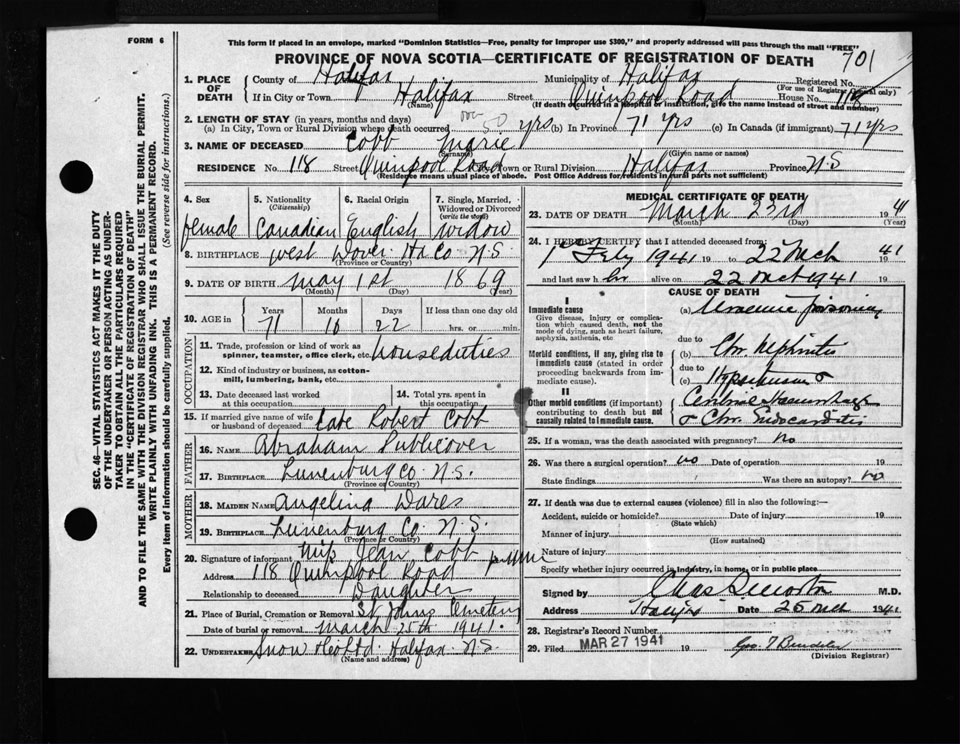 FORM 6
This form if placed in an envelope, marked "Dominion Statistics—Free, penalty for improper use $300," and properly addressed will pass through the mail "FREE"
PROVINCE OF NOVA SCOTIA—CERTIFICATE OF REGISTRATION OF DEATH
701
SEC. 46—VITAL STATISTICS ACT MAKES IT THE DUTY
OF THE UNDERTAKER OR PERSON ACTING AS UNDER-
TAKER TO OBTAIN ALL THE PARTICULARS REQUIRED
IN THE "CERTIFICATE OF REGISTRATION OF DEATH"
AND TO FILE THE SAME WITH THE DIVISION REGISTRAR WHO SHALL ISSUE THE BURIAL PERMIT.
WRITE PLAINLY WITH UNFADING INK. THIS IS A PERMANENT RECORD.
Every item of information should be carefully supplied. (See reverse side for instructions).
1. PLACE OF DEATH County of Halifax Municipality of Halifax Registered No.
(For use of Registrar General only)
If in City or Town Halifax Street Quinpool Road House No. 118
(Name) (If death occurred in a hospital or institution, give the name instead of street and number)
2. LENGTH OF STAY (in years, months and days)
(a) In City, Town or Rural Division where death occurred 50 yrs (b) In Province 71 yrs (c) In Canada (if immigrant) 71 yrs
3. NAME OF DECEASED Cobb Marie
(Surname) (Given name or names)
RESIDENCE No. 118 Street Quinpool Road Town or Rural Division Halifax Province N.S
(Residence means usual place of abode. Post Office Address for residents in rural parts not sufficient)
4. Sex 5. Nationality (Citizenship) 6. Racial Origin 7. Single, Married, Widowed or Divorced (write the word)
female Canadian English widow
8. BIRTHPLACE West Dover Hx Co N.S
(Province or Country)
9. DATE OF BIRTH May 1st 1869
(Month) (Day) (Year)
10. AGE in Years Months Days If less than one day old
71 10 22 hrs. or min.
OCCUPATION
11. Trade, profession or kind of work as
spinner, teamster, office clerk, etc. houseduties
12. Kind of industry or business, as cotton-
mill, lumbering, bank, etc.
13. Date deceased last worked at this occupation 14. Total yrs. spent in this occupation
15. If married give name of wife or husband of deceased Late Robert Cobb
FATHER
16. NAME Abraham Publicover
17. BIRTHPLACE Lunenburg Co. N.S.
(Province or Country)
MOTHER
18. MAIDEN NAME Angelina Dares
19. BIRTHPLACE Lunenburg Co. N.S.
(Province or Country)
20. Signature of informant Miss Jean Cobb
Address 118 Quinpool Road
Relationship to deceased Daughter
21. Place of Burial, Cremation or Removal St. Johns Cemetery
Date of burial or removal March 25th 1941.
22. UNDERTAKER Snow & Co Ltd. Halifax N.S.
(Name and address)
MEDICAL CERTIFICATE OF DEATH
23. DATE OF DEATH March 23rd 1941
(Month) (Day) (Year)
24. I HEREBY CERTIFY that I attended deceased from:
1st Feby 1941 19 to 22 Mch 1941
and last saw her alive on 22 Mch 1941 19
CAUSE OF DEATH
I
Immediate cause
Give disease, injury or complica-
tion which caused death, not the
mode of dying, such as heart failure,
asphyxia, asthenia, etc
(a) Uraemic poisoning
due to
Morbid conditions, if any, giving rise to
immediate cause (stated in order
proceeding backwards from imme-
diate cause).
(b) Chr. Nephritis
due to
(c) Hypertension &
II
Other morbid conditions (if important)
contributing to death but not
causally related to immediate cause.
Cerebral Haemorrhage
& Chr. Endocarditis
25. If a woman, was the death associated with pregnancy? no
26. Was there a surgical operation? no Date of operation 19
State findings Was there an autopsy? no
27. If death was due to external causes (violence) fill in also the following:—
Accident, suicide or homicide? Date of injury 19
(State which)
Manner of injury
(How sustained)
Nature of injury
Specify whether injury occurred in industry, in home, or in public place
Signed by Chas M.D.
Address Halifax Date 25 Mch 1941
28. Registrar's Record Number
29. Filed MAR 27 1941 19 Geo.
(Division Registrar)